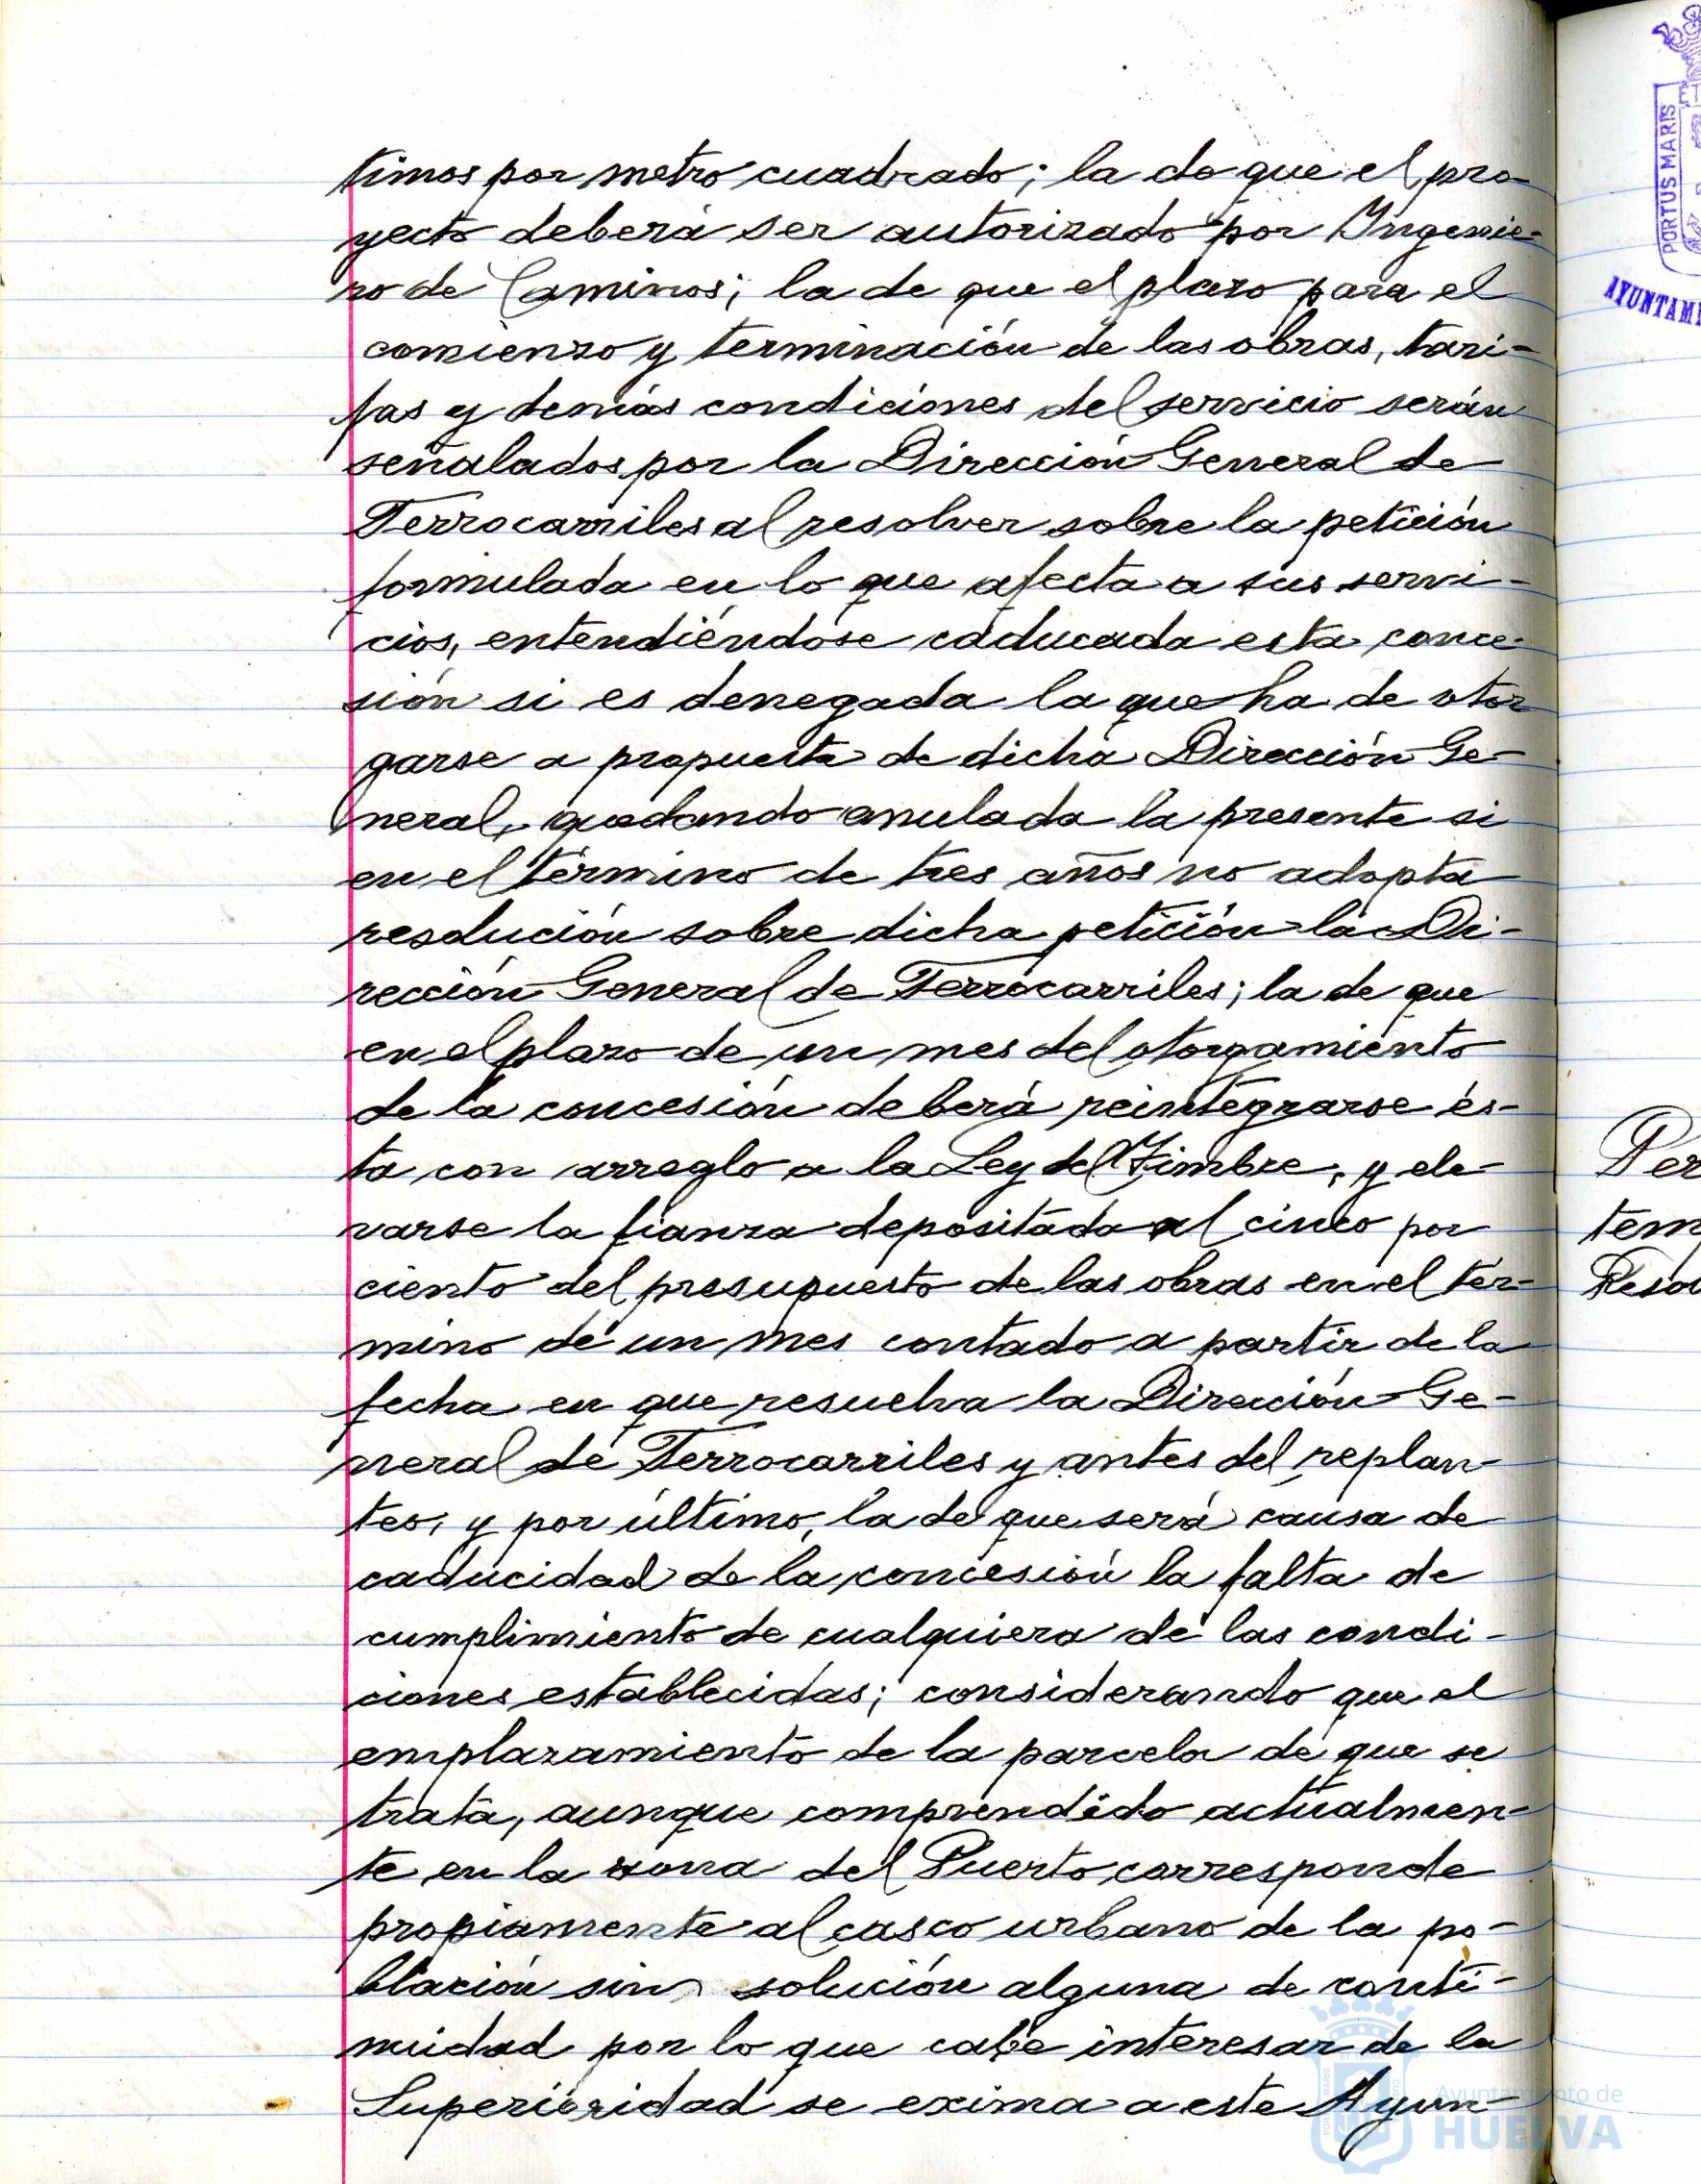 timos por metro cuadrado; la de que el pro-
yecto deberá ser autorizado por Ingenie-
ro de Caminos; la de que el plazo para el
comienzo y terminación de las obras, tari-
fas y demás condiciones del servicio serán
señalados por la Dirección General de
Ferrocarriles al resolver sobre la petición
formulada en lo que afecta a sus servi-
cios, entendiéndose caducada esta conce-
sión si es denegada la que ha de otor
garse a propuesta de dicha Dirección Ge-
neral, quedando anulada la presente si
en el término de tres años no adopta
resolución sobre dicha petición la Di-
rección General de Ferrocarriles; la de que
en el plazo de un mes del otorgamiento
de la concesión deberá reintegrarse és-
ta con arreglo a la Ley del Timbre, y ele-
varse la fianza depositada al cinco por
ciento del presupuesto de las obras en el tér-
mino de un mes contado a partir de la
fecha en que resuelva la Dirección Ge-
neral de Ferrocarriles y antes del replan-
teo, y por último, la de que será causa de
caducidad de la concesión la falta de
cumplimiento de cualquiera de las condi-
ciones establecidas; considerando que el
emplazamiento de la parcela de que se
trata, aunque comprendido actualmen-
te en la zona del Puerto corresponde
propiamente al casco urbano de la po-
blación sin solución alguna de conti-
nuidad por lo que cabe interesar de la
Superioridad se exima a este Ayun-
PORTUS MARIS
AYUNTAMI
Per
tem
Resou
Ayuntamiento de
HUELVA